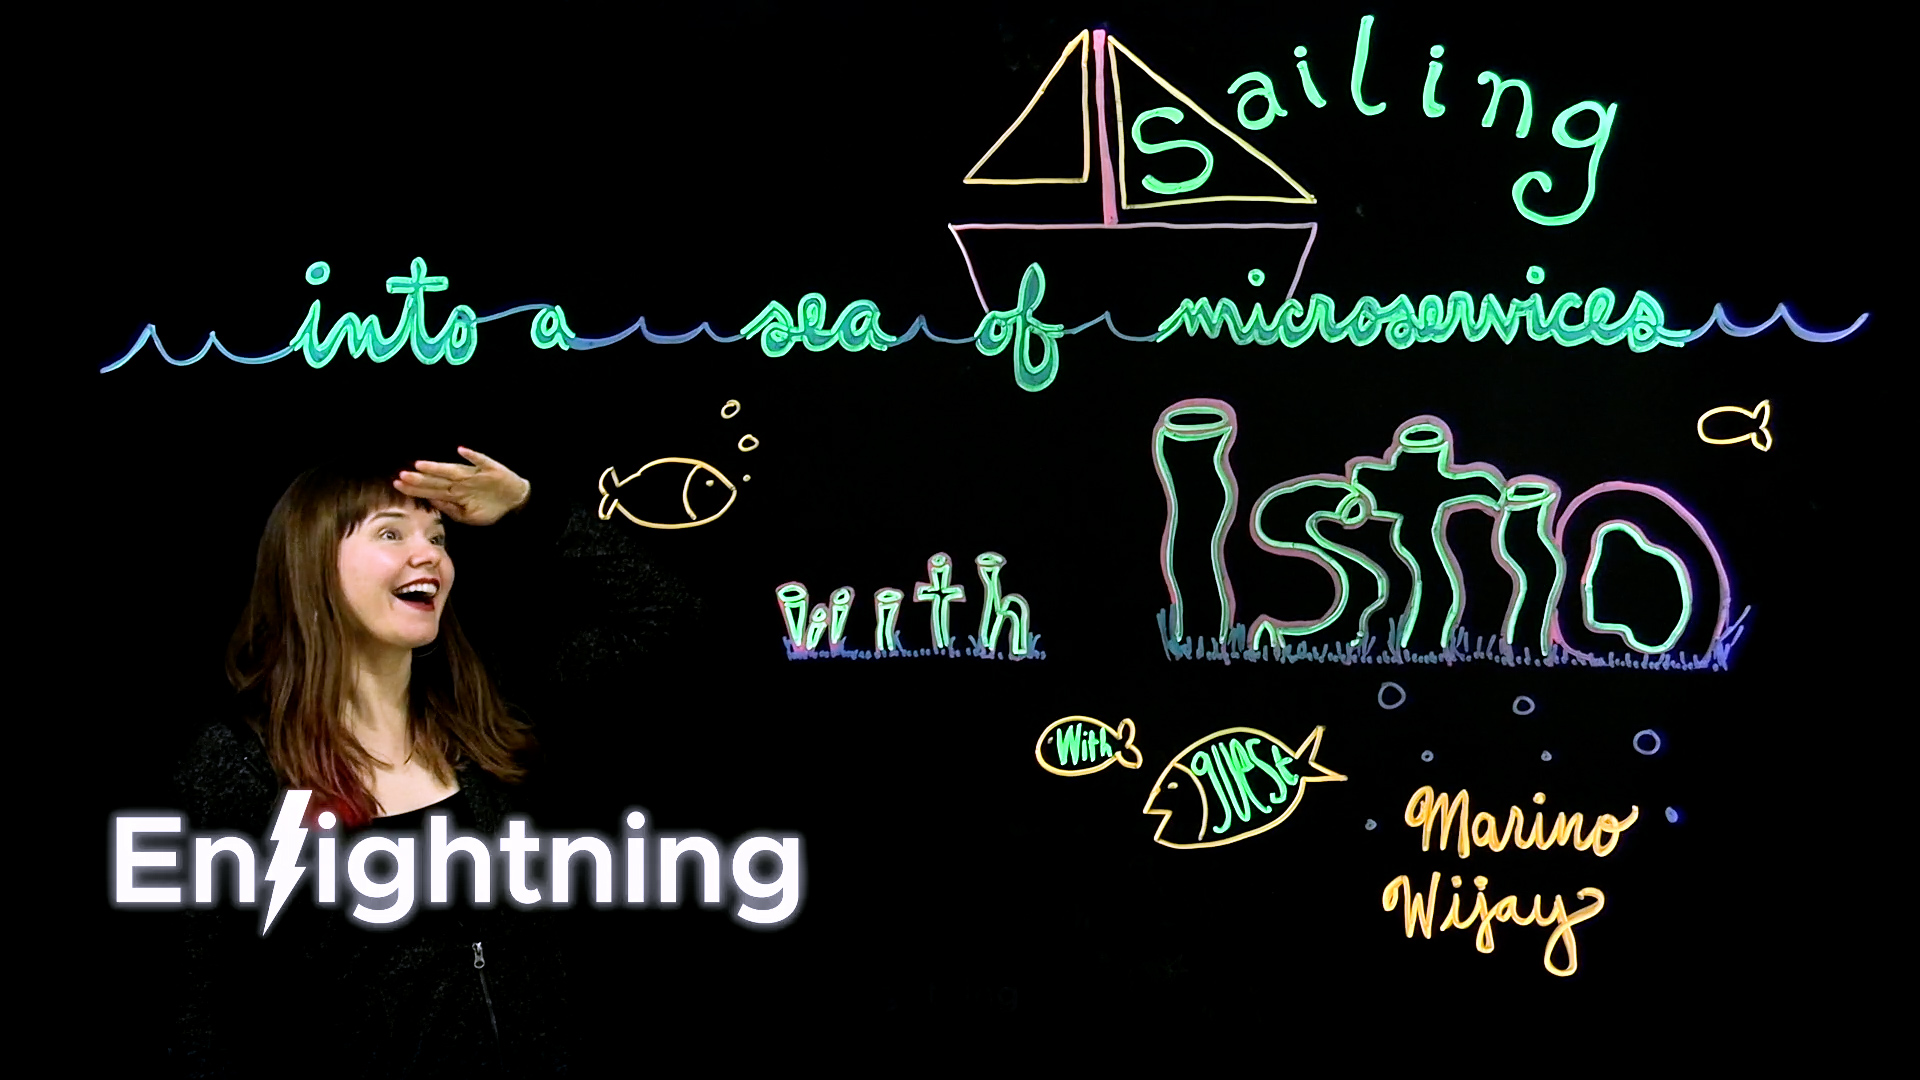 Sailing
into a sea of microservices
with Istio
With guest
Marino
Wijay
Enlightning